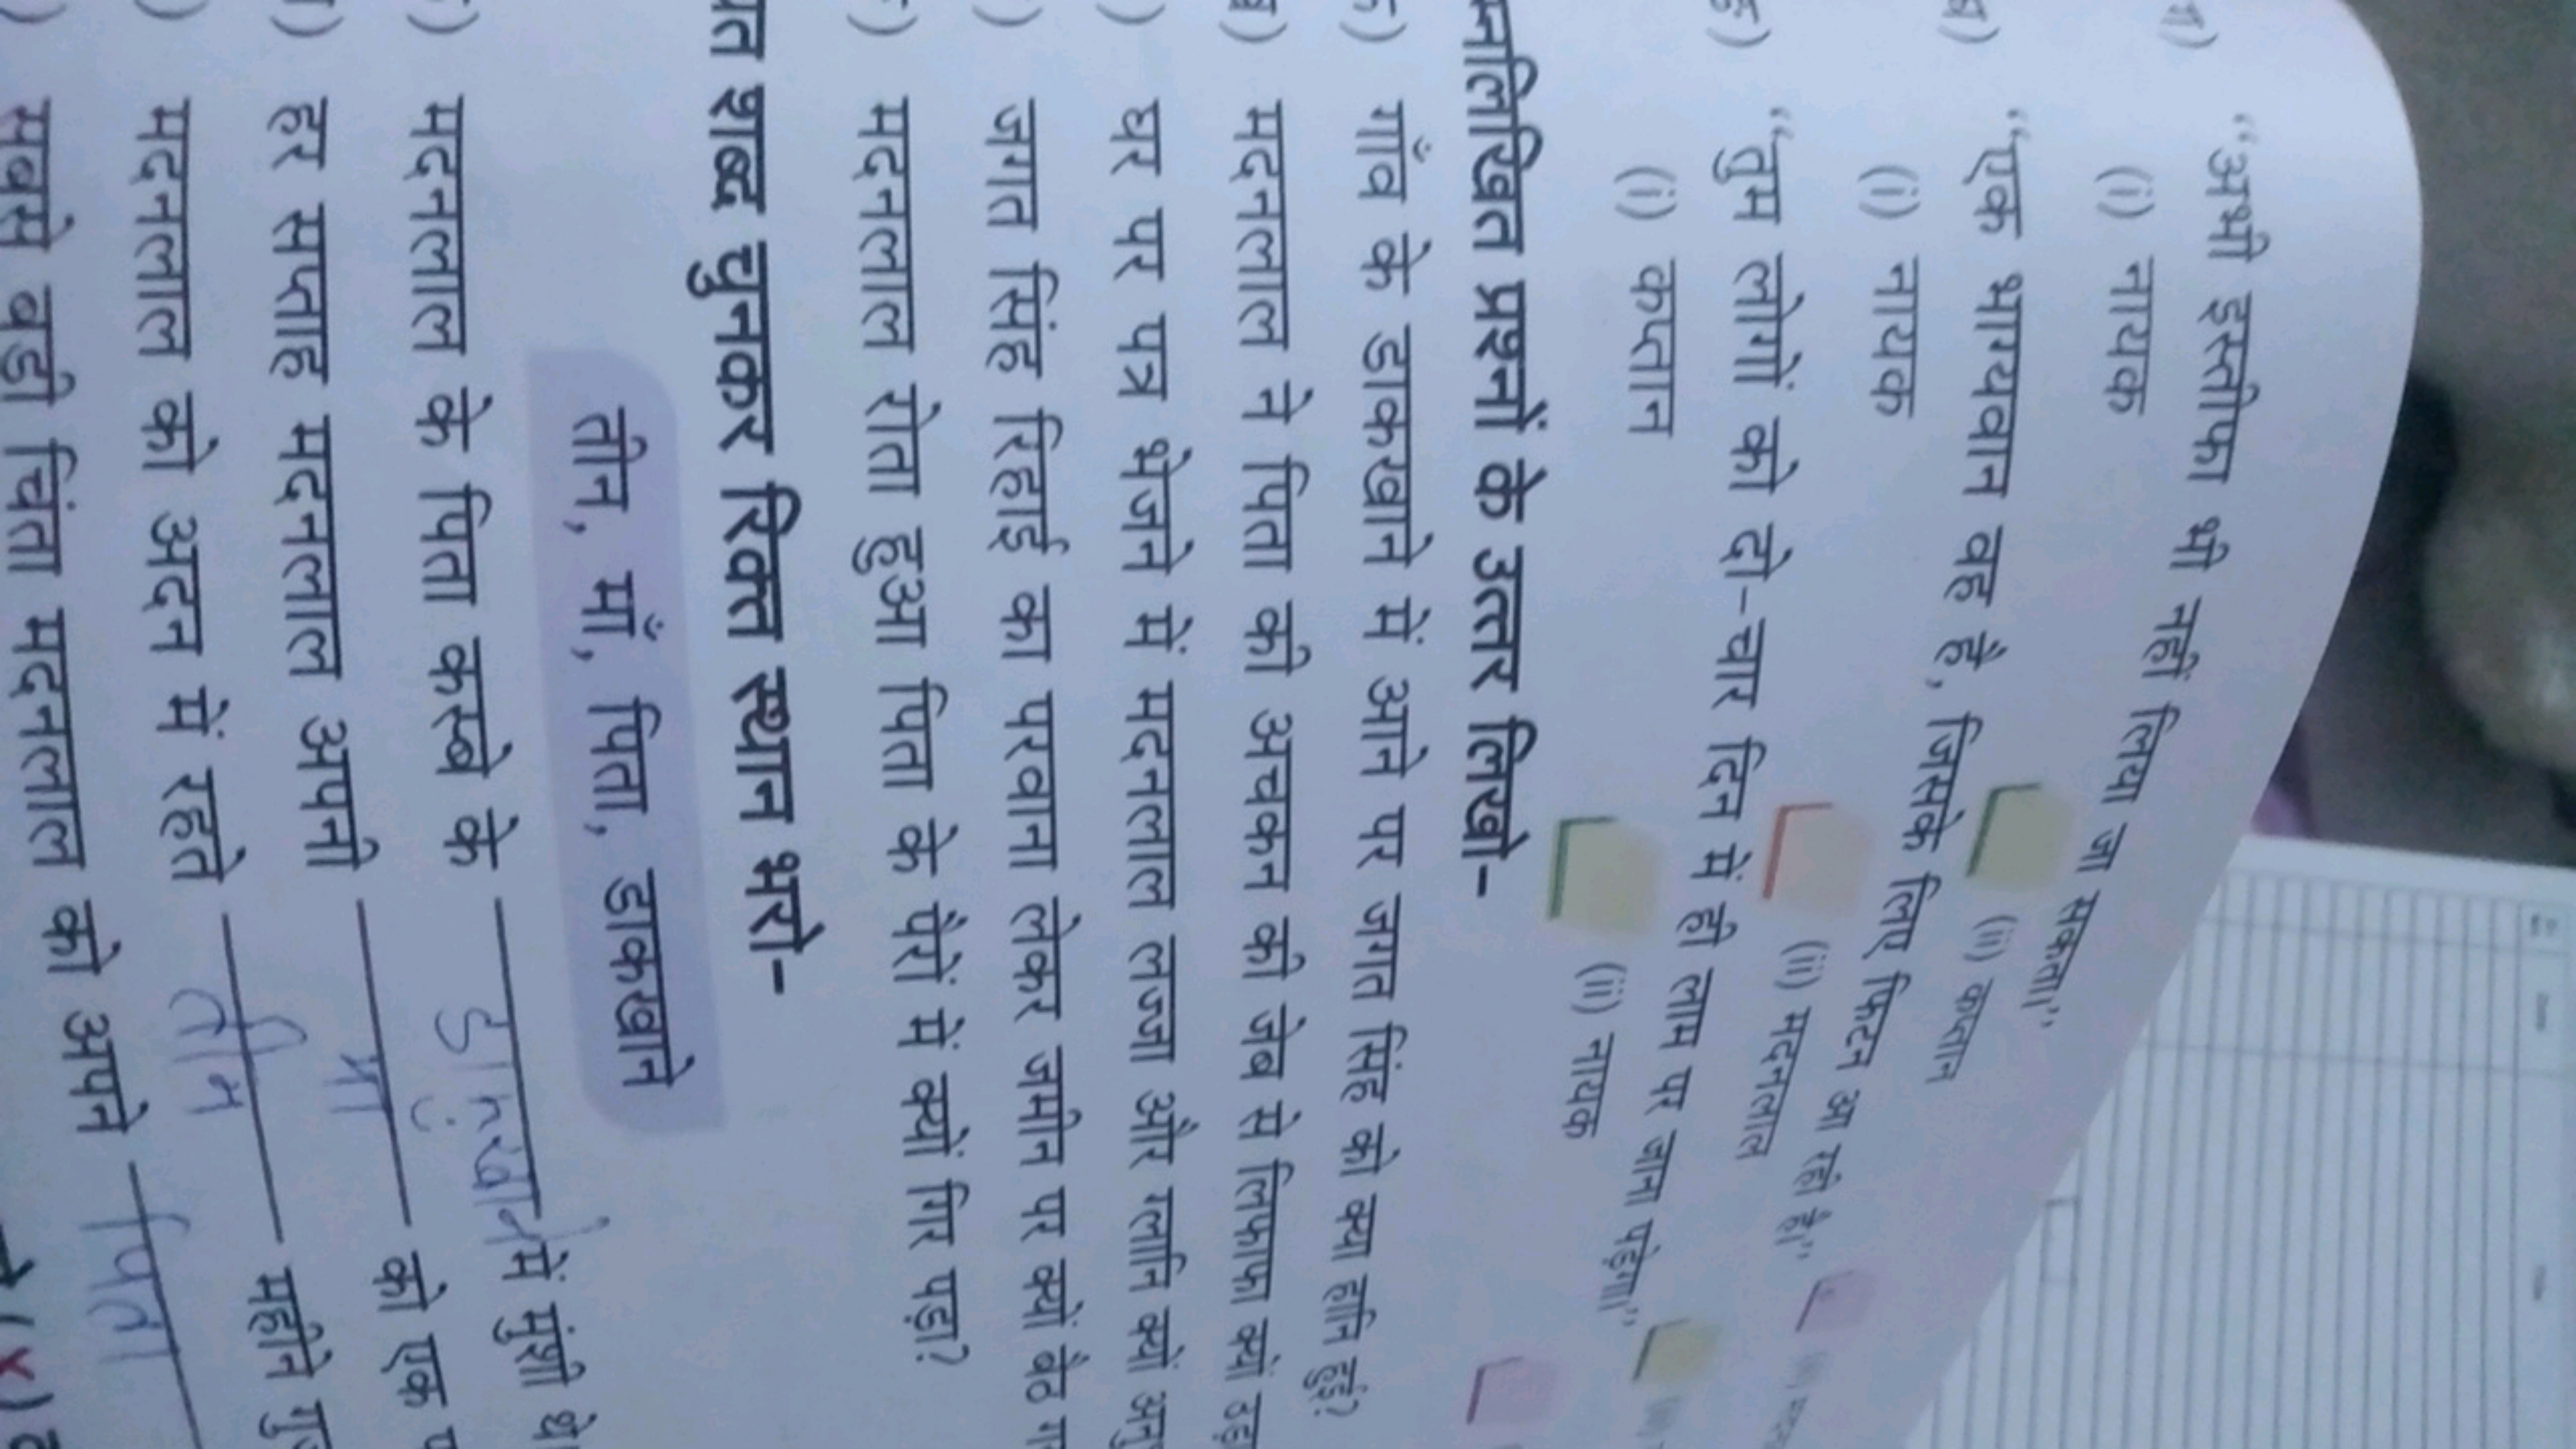 “अभी इस्तीफा भी नहीं लिया जा सकता।”
(i) नायक (ii) कप्तान
“एक भाग्यवान वह है, जिसके लिए फिटन आ रही है।”
(i) नायक (ii) मदनलाल
“तुम लोगों को दो-चार दिन में ही लाम पर जाना पड़ेगा।”
(i) कप्तान (ii) नायक
म्नलिखित प्रश्नों के उत्तर लिखो-
गाँव के डाकखाने में आने पर जगत सिंह को क्या हानि हुई?
मदनलाल ने पिता की अचकन की जेब से लिफाफा क्यों
घर पर पत्र भेजने में मदनलाल लज्जा और ग्लानि क्यों
जगत सिंह रिहाई का परवाना लेकर जमीन पर क्यों बैठ
मदनलाल रोता हुआ पिता के पैरों में क्यों गिर पड़ा?
शब्द चुनकर रिक्त स्थान भरो-
तीन, माँ, पिता, डाकखाने
मदनलाल के पिता कस्बे के डाकखाने में मुंशी थे
हर सप्ताह मदनलाल अपनी माँ को एक
मदनलाल को अदन में रहते तीन महीने
सबसे बड़ी चिंता मदनलाल को अपने पिता
(x)